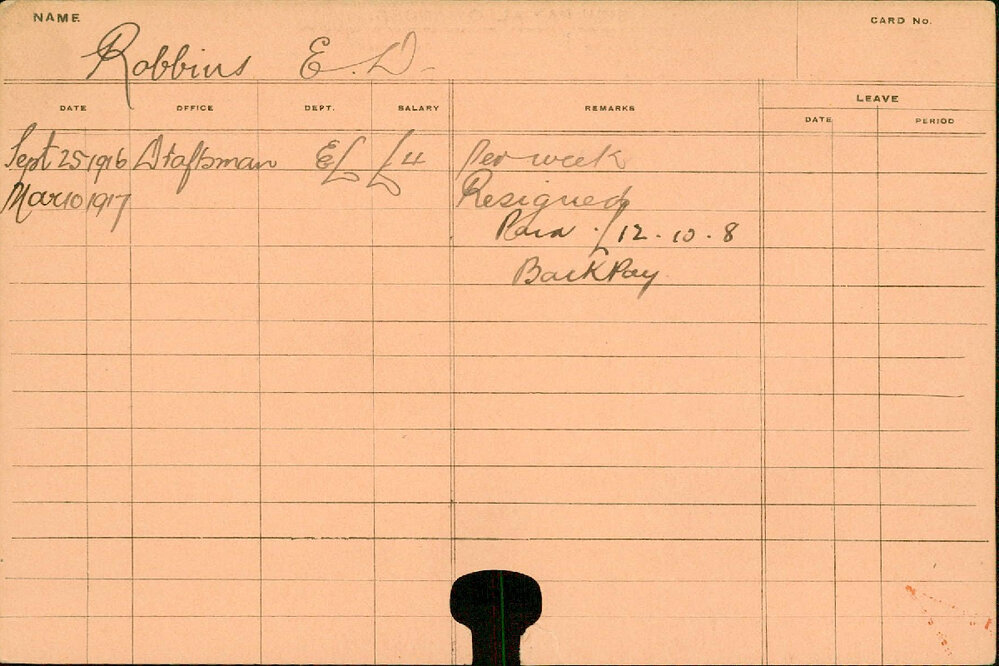 NAME
CARD No.
Robbins E. D.
DATE OFFICE DEPT. SALARY REMARKS LEAVE
DATE PERIOD
Sept 25 1916 Draftsman £4 per week
Mar 10 1917 Resigned
Paid £12-10-8
Back Pay